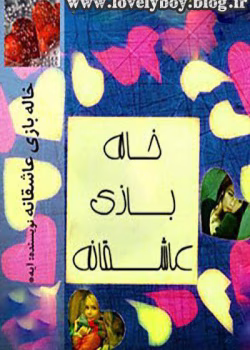 www.lovelyboy.blog.ir
خاله
بازی
عاشقانه
خاله بازی عاشقانه نویسنده: آیه